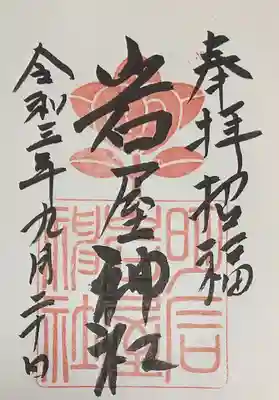 奉拝 招福
岩屋神社
令和三年九月二十日
明石
岩屋
神社